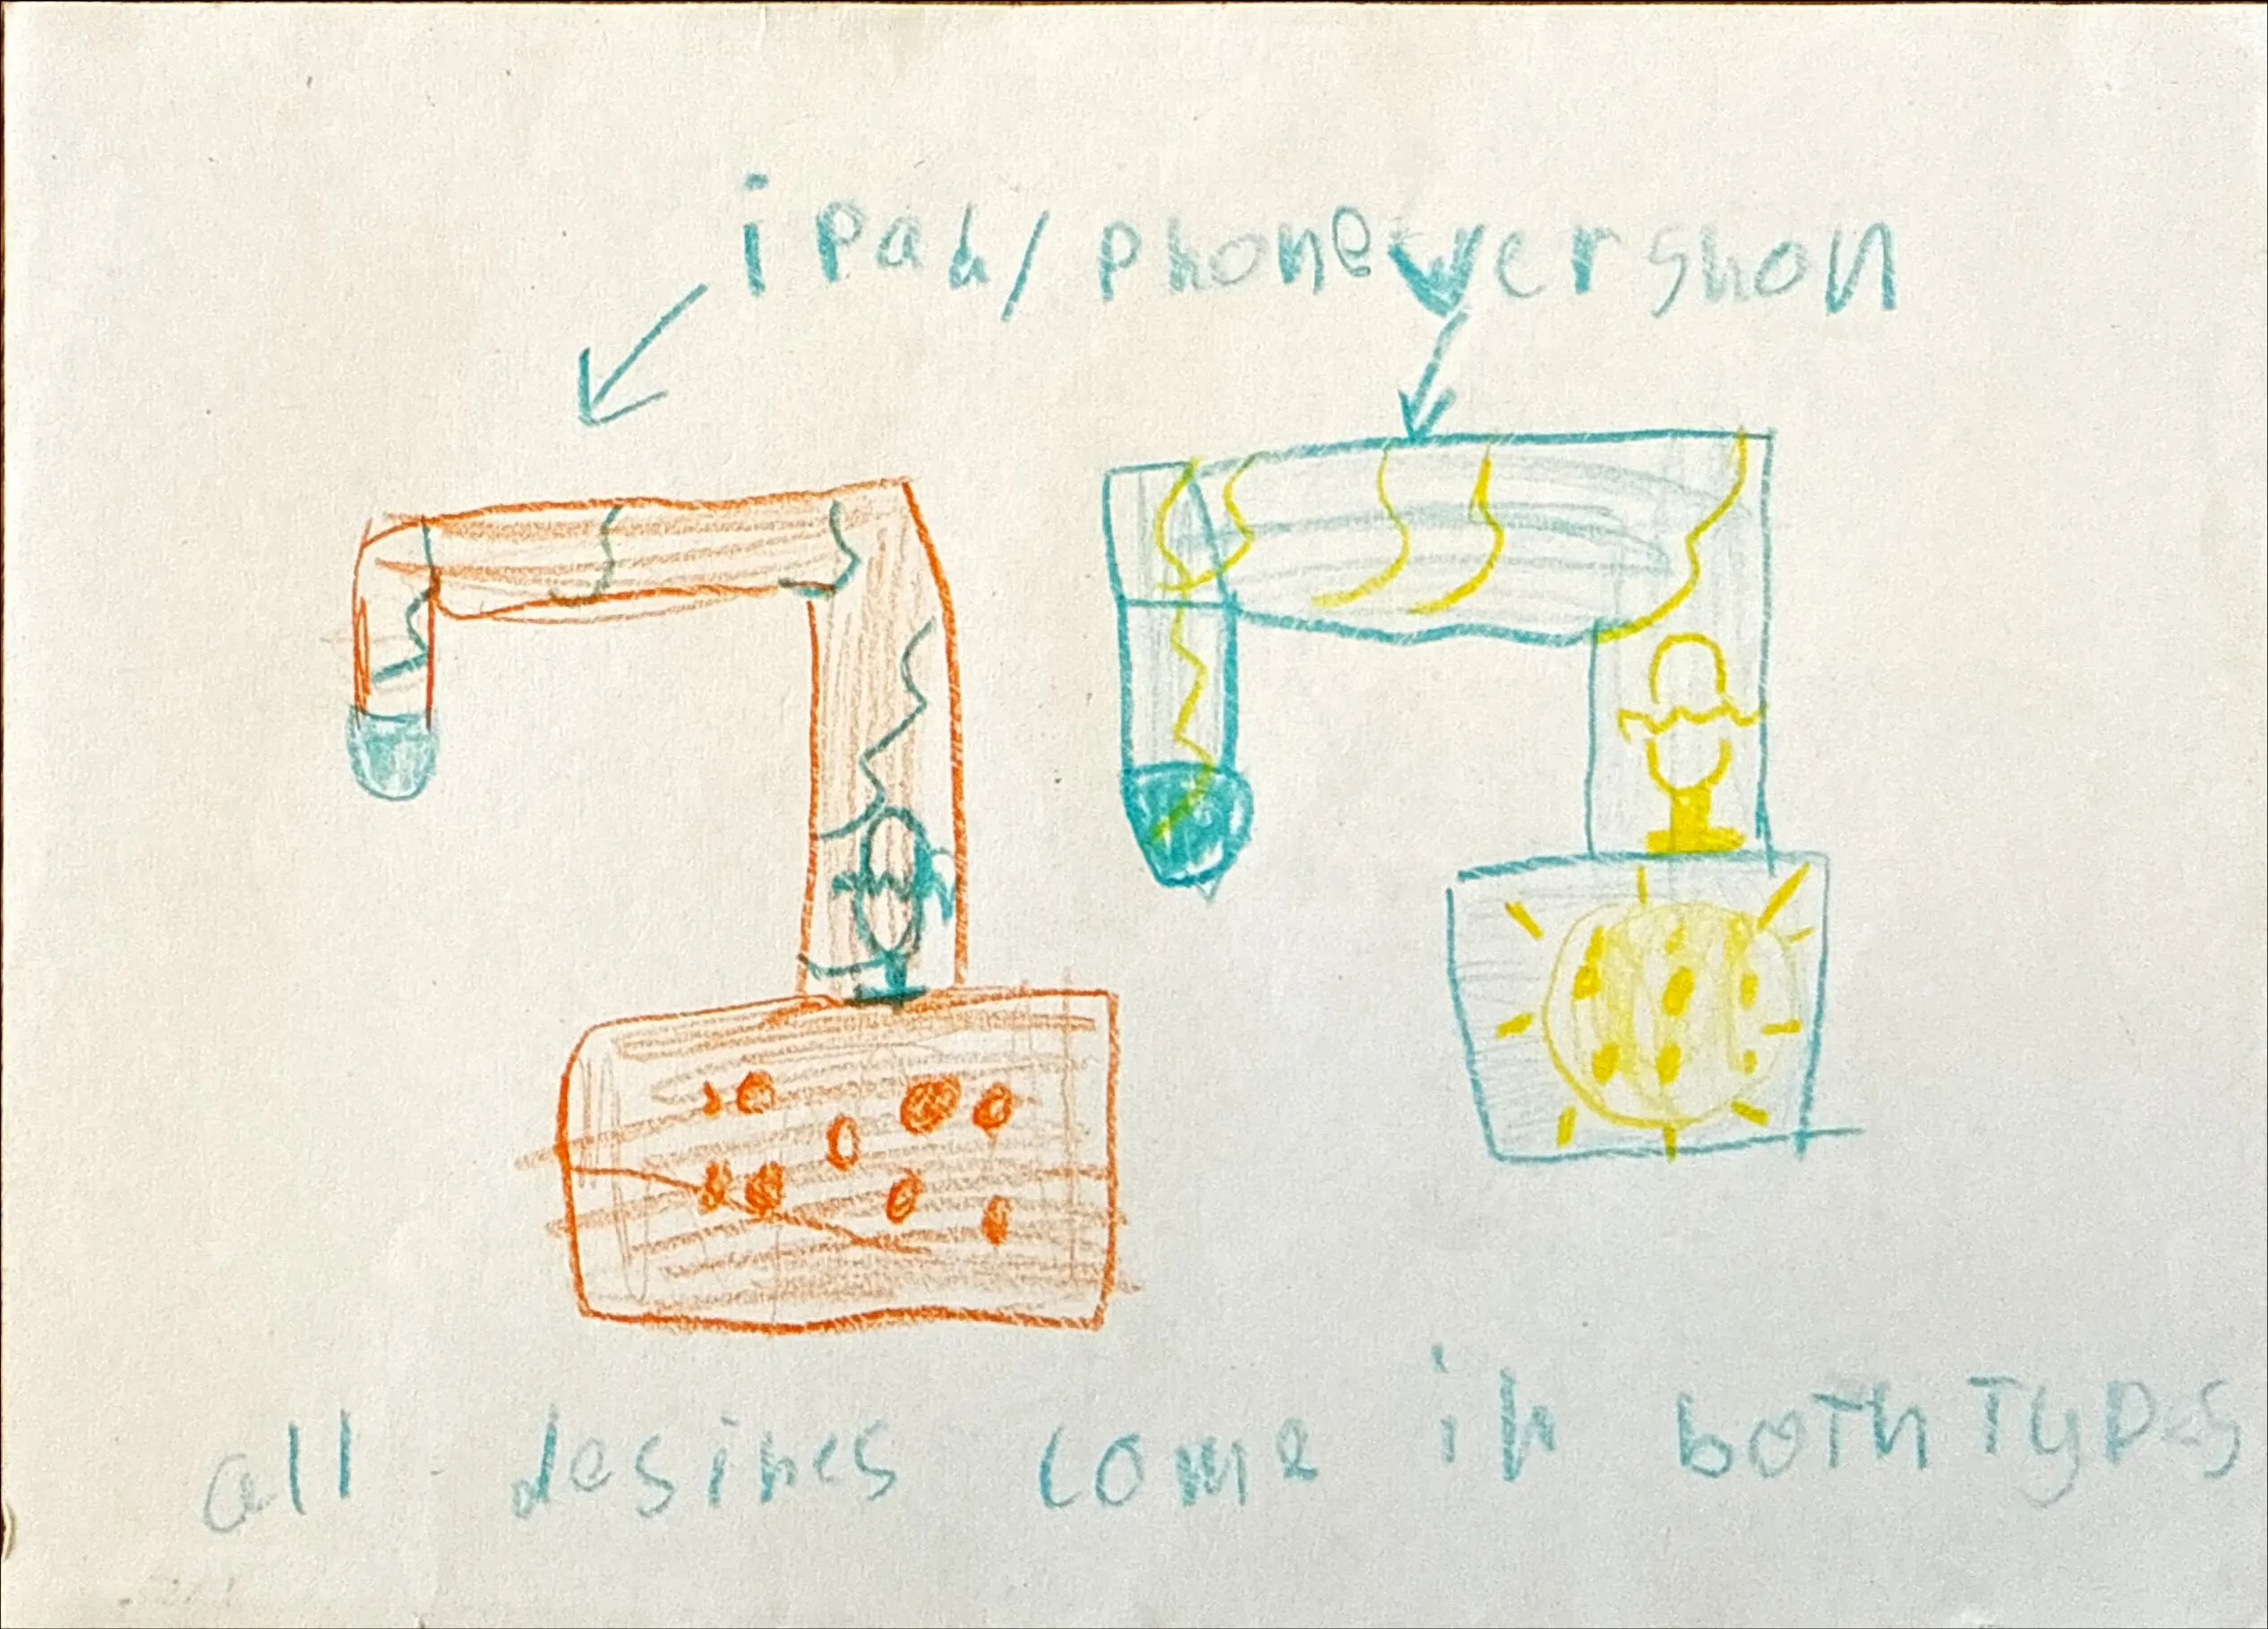 ipad/phone vershon
all desines come in both Types